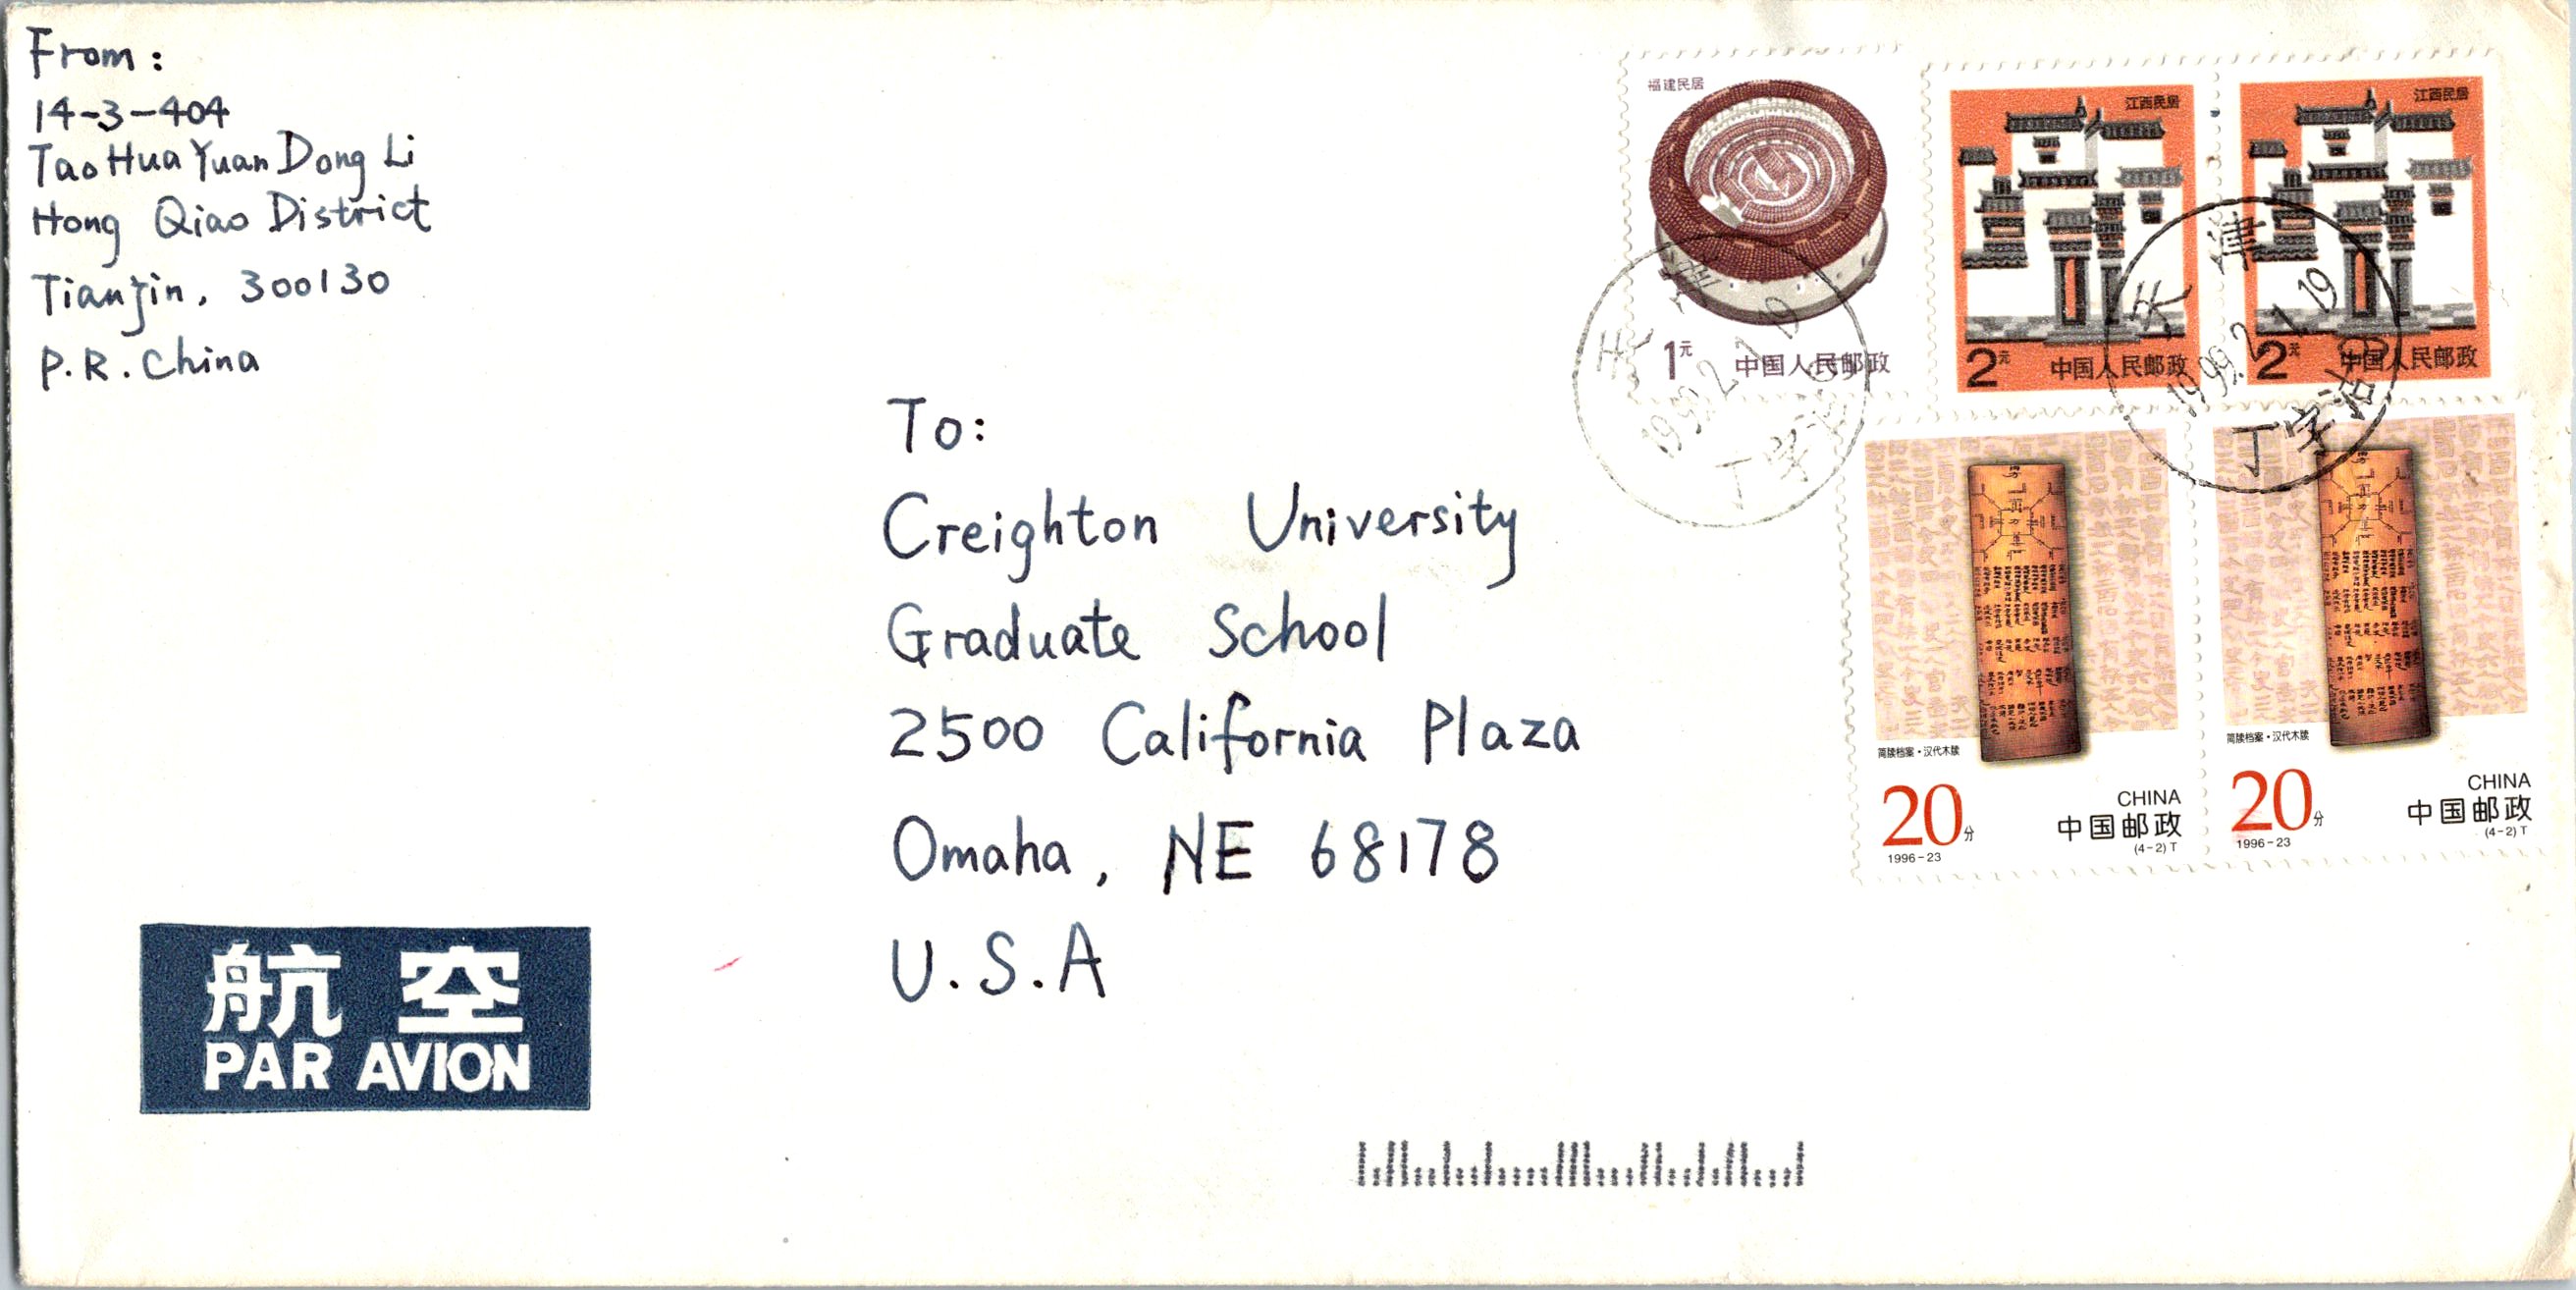 From:
14-3-404
Tao Hua Yuan Dong Li
Hong Qiao District
Tianjin, 300130
P.R. China
To:
Creighton University
Graduate School
2500 California Plaza
Omaha, NE 68178
U.S.A
航空
PAR AVION
福建民居
1元
中国人民邮政
江西民居
2元
中国人民邮政
江西民居
2元
中国人民邮政
天津
1999.2.1.19
丁字沽
天
1999.2.1.19
丁字沽
简牍档案·汉代木牍
20分
1996-23
CHINA
中国邮政
(4-2)T
简牍档案·汉代木牍
20分
1996-23
CHINA
中国邮政
(4-2)T